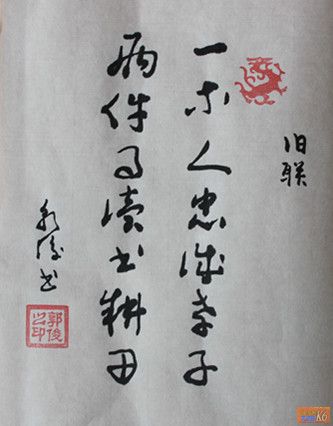 旧联
一等人忠诚孝子
两件事读书耕田
郭俊书
郭俊之印